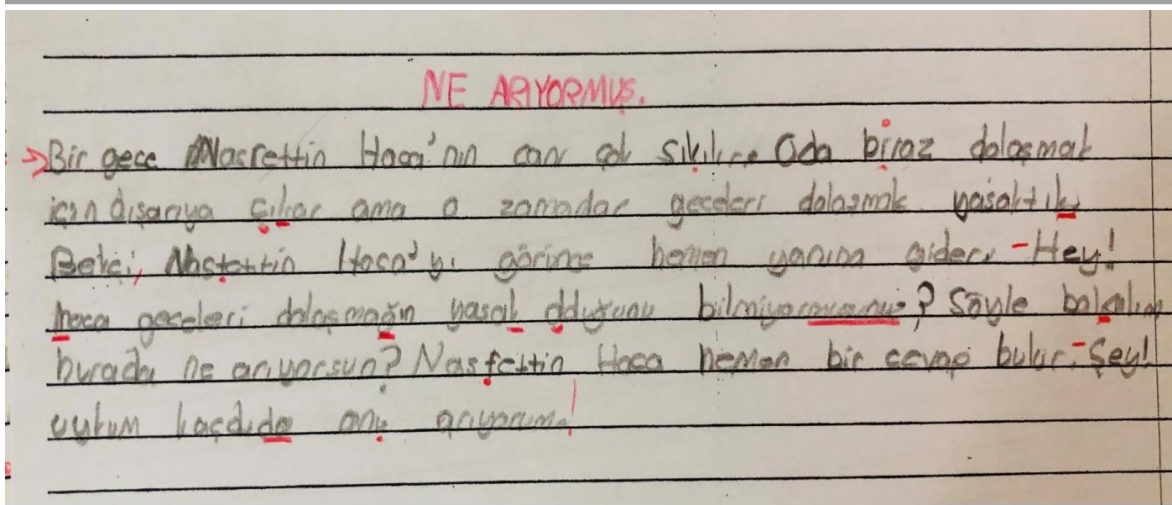 NE ARIYORMUŞ.
Bir gece Nasrettin Hoca'nın canı çok sıkılır. Oda biraz dolaşmak
için dışarıya çıkar ama o zamanlar geceleri dolaşmak yasaktır.
Bekçi, Nasrettin Hoca'yı görünce hemen yanına gider. -Hey!
hoca geceleri dolaşmağın yasak olduğunu bilmiyormusunuz? Söyle bakalım
burada ne arıyorsun? Nasrettin Hoca hemen bir cevap bulur. -Şey!
uykum kaçdıda onu arıyorum!